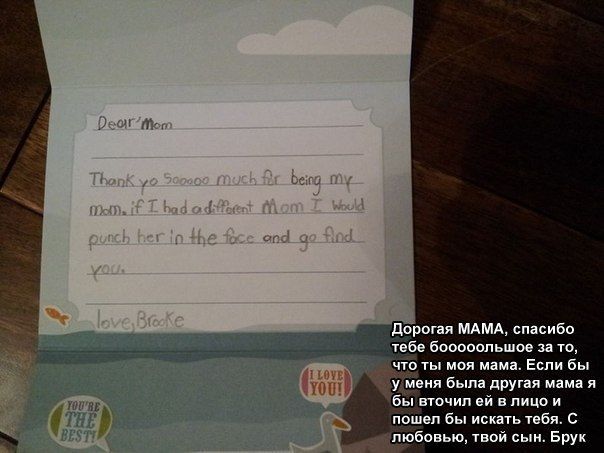 Dear Mom
Thank yo Sooooo much for being my
mom. if I had a different Mom I would
punch her in the face and go find
you.
love, Brooke
I LOVE
YOU!
YOU'RE
THE
BEST!
Дорогая МАМА, спасибо
тебе бооооольшое за то,
что ты моя мама. Если бы
у меня была другая мама я
бы вточил ей в лицо и
пошел бы искать тебя. С
любовью, твой сын. Брук